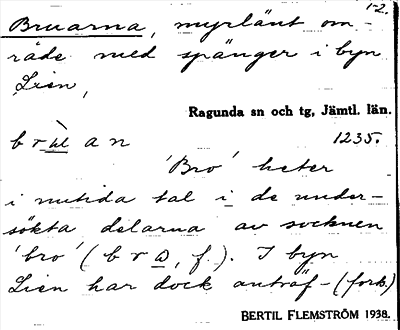 1-2.
Bruarna, myrlänt om-
råde med spänger i byn
Lien,
Ragunda sn och tg, Jämtl. län.
1235.
'Bro' heter
i nutida tal i de under-
sökta delarna av socknen
'bro' (b r ω, f.). I byn
Lien har dock anträf- (forts.)
BERTIL FLEMSTRÖM 1938.